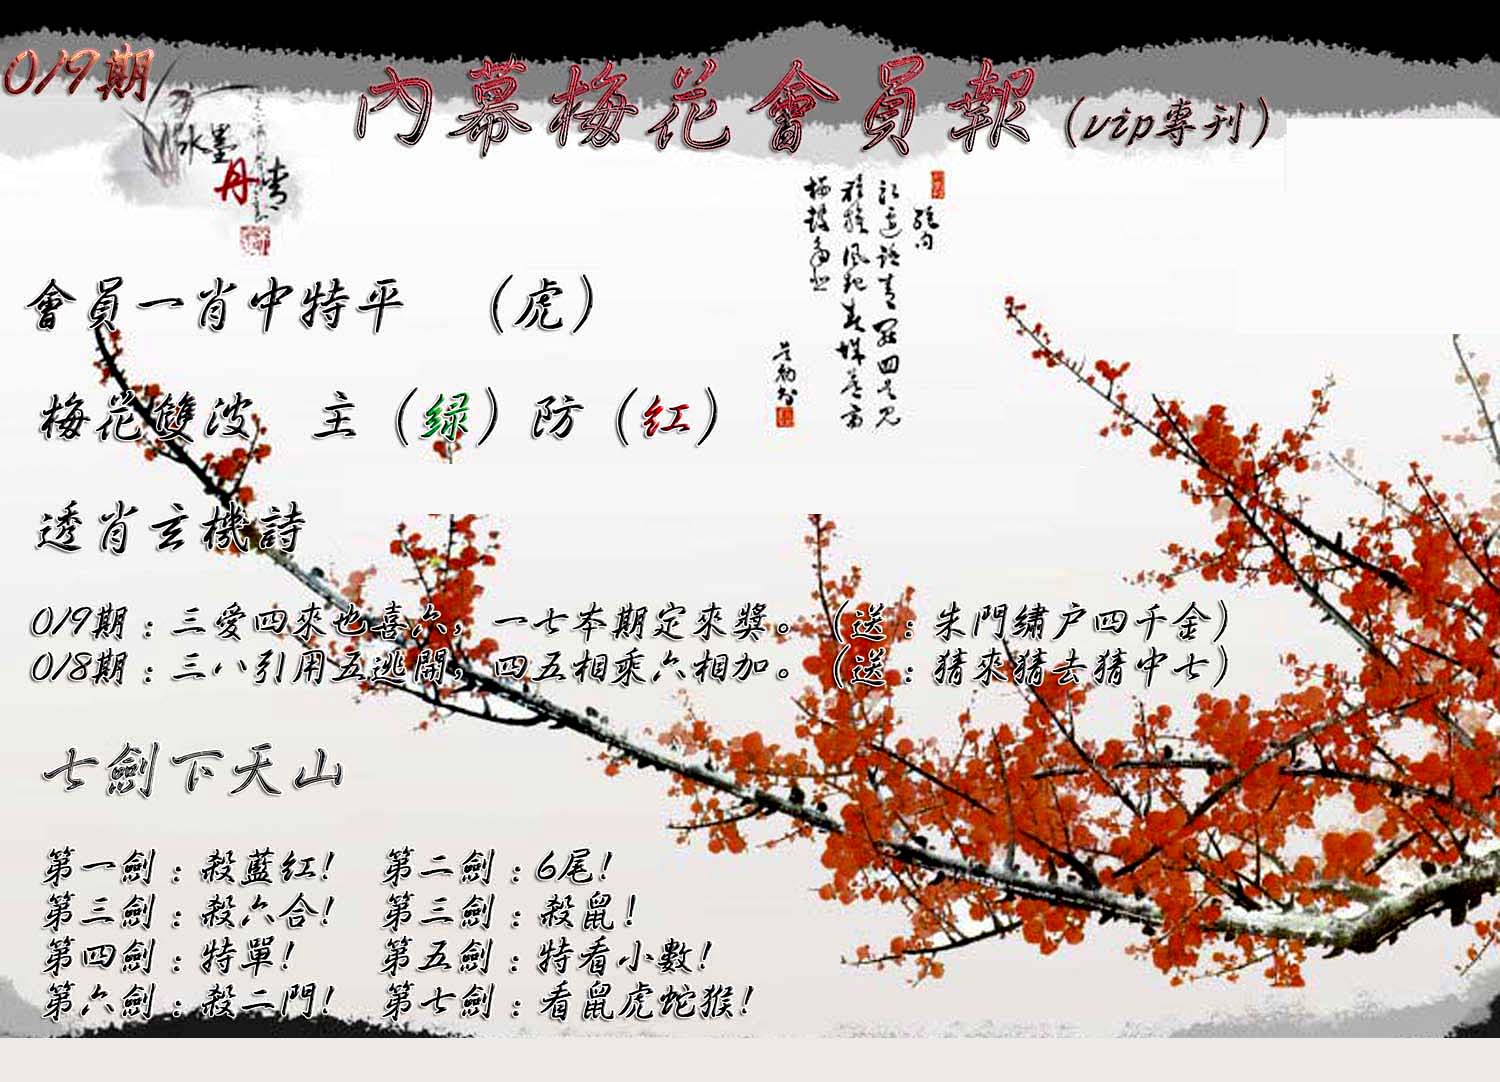 019期
內幕梅花會員報（vip專刊）
水墨
丹青
會員一肖中特平　（虎）
梅花雙波　主（绿）防（红）
透肖玄機詩
019期：三愛四來也喜六，一七本期定來獎。（送：朱門繡户四千金）
018期：三八引用五逃開，四五相乘六相加。（送：猜來猜去猜中七）
七劍下天山
第一劍：殺藍紅！　第二劍：6尾！
第三劍：殺六合！　第三劍：殺鼠！
第四劍：特單！　第五劍：特看小數！
第六劍：殺二門！　第七劍：看鼠虎蛇猴！